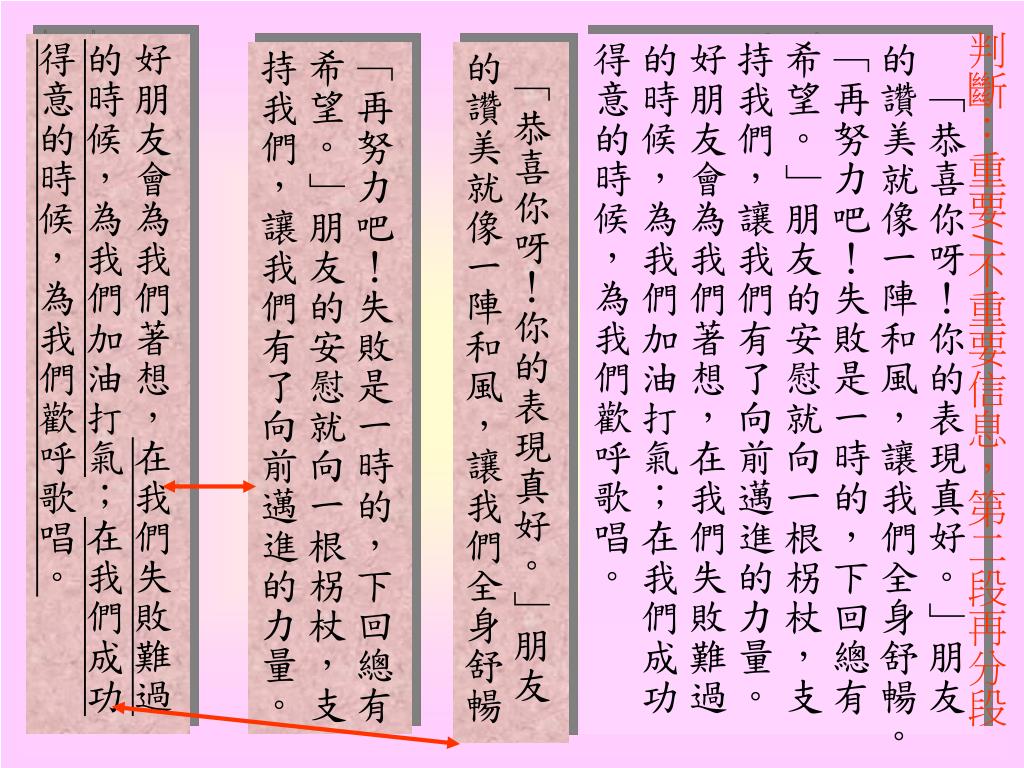 判斷：重要/不重要信息，第二段再分段
「恭喜你呀！你的表現真好。」朋友
的讚美就像一陣和風，讓我們全身舒暢。
「再努力吧！失敗是一時的，下回總有
希望。」朋友的安慰就向一根枴杖，支
持我們，讓我們有了向前邁進的力量。
好朋友會為我們著想，在我們失敗難過
的時候，為我們加油打氣；在我們成功
得意的時候，為我們歡呼歌唱。
「恭喜你呀！你的表現真好。」朋友
的讚美就像一陣和風，讓我們全身舒暢
「再努力吧！失敗是一時的，下回總有
希望。」朋友的安慰就向一根枴杖，支
持我們，讓我們有了向前邁進的力量。
好朋友會為我們著想，在我們失敗難過
的時候，為我們加油打氣；在我們成功
得意的時候，為我們歡呼歌唱。